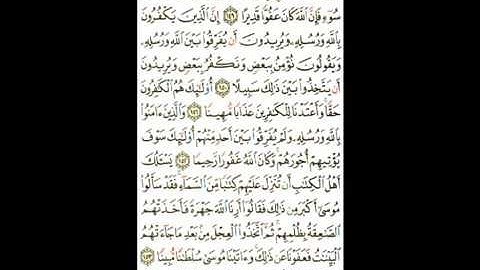 سُوٓءٖ فَإِنَّ ٱللَّهَ كَانَ عَفُوّٗا قَدِيرًا ١٤٩ إِنَّ ٱلَّذِينَ يَكۡفُرُونَ
بِٱللَّهِ وَرُسُلِهِۦ وَيُرِيدُونَ أَن يُفَرِّقُوا۟ بَيۡنَ ٱللَّهِ وَرُسُلِهِۦ
وَيَقُولُونَ نُؤۡمِنُ بِبَعۡضٖ وَنَكۡفُرُ بِبَعۡضٖ وَيُرِيدُونَ
أَن يَتَّخِذُوا۟ بَيۡنَ ذَٰلِكَ سَبِيلًا ١٥٠ أُو۟لَٰٓئِكَ هُمُ ٱلۡكَٰفِرُونَ
حَقّٗا وَأَعۡتَدۡنَا لِلۡكَٰفِرِينَ عَذَابٗا مُّهِينٗا ١٥١ وَٱلَّذِينَ ءَامَنُوا۟
بِٱللَّهِ وَرُسُلِهِۦ وَلَمۡ يُفَرِّقُوا۟ بَيۡنَ أَحَدٖ مِّنۡهُمۡ أُو۟لَٰٓئِكَ سَوۡفَ
يُؤۡتِيهِمۡ أُجُورَهُمۡ وَكَانَ ٱللَّهُ غَفُورٗا رَّحِيمٗا ١٥٢ يَسۡـَٔلُكَ
أَهۡلُ ٱلۡكِتَٰبِ أَن تُنَزِّلَ عَلَيۡهِمۡ كِتَٰبٗا مِّنَ ٱلسَّمَآءِ فَقَدۡ سَأَلُوا۟
مُوسَىٰٓ أَكۡبَرَ مِن ذَٰلِكَ فَقَالُوٓا۟ أَرِنَا ٱللَّهَ جَهۡرَةٗ فَأَخَذَتۡهُمُ
ٱلصَّٰعِقَةُ بِظُلۡمِهِمۡ ثُمَّ ٱتَّخَذُوا۟ ٱلۡعِجۡلَ مِنۢ بَعۡدِ مَا جَآءَتۡهُمُ
ٱلۡبَيِّنَٰتُ فَعَفَوۡنَا عَن ذَٰلِكَ وَءَاتَيۡنَا مُوسَىٰ سُلۡطَٰنٗا مُّبِينٗا ١٥٣